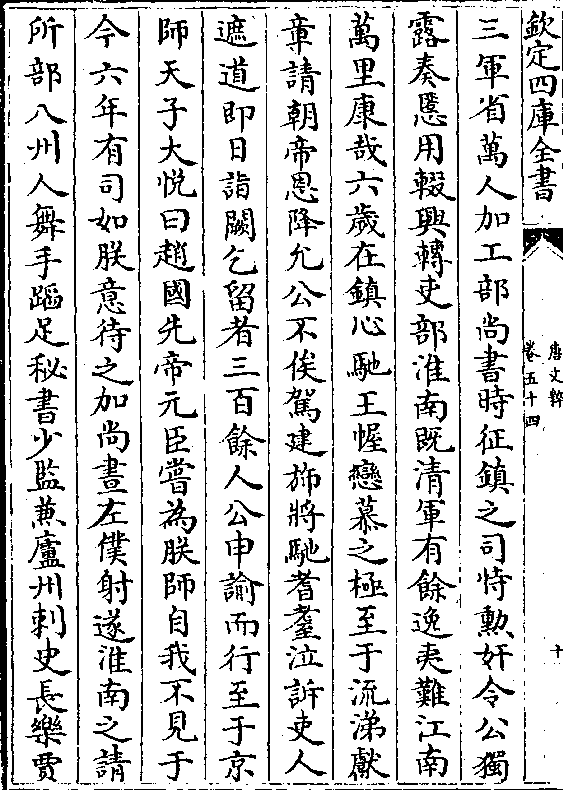 欽定四庫全書
唐文粹
卷五十四
十
三軍省萬人加工部尚書時征鎮之司恃勲奸令公獨
露奏慝用輟興轉吏部淮南既清軍有餘逸夷難江南
萬里康哉六歲在鎮心馳王幄戀慕之極至于流涕獻
章請朝帝恩降允公不俟駕建斾將馳耆耋泣訴吏人
遮道即日詣闕乞留者三百餘人公申諭而行至于京
師天子大悦曰趙國先帝元臣嘗為朕師自我不見于
今六年有司如朕意待之加尚書左僕射遂淮南之請
所部八州人舞手蹈足秘書少監兼廬州刺史長樂賈